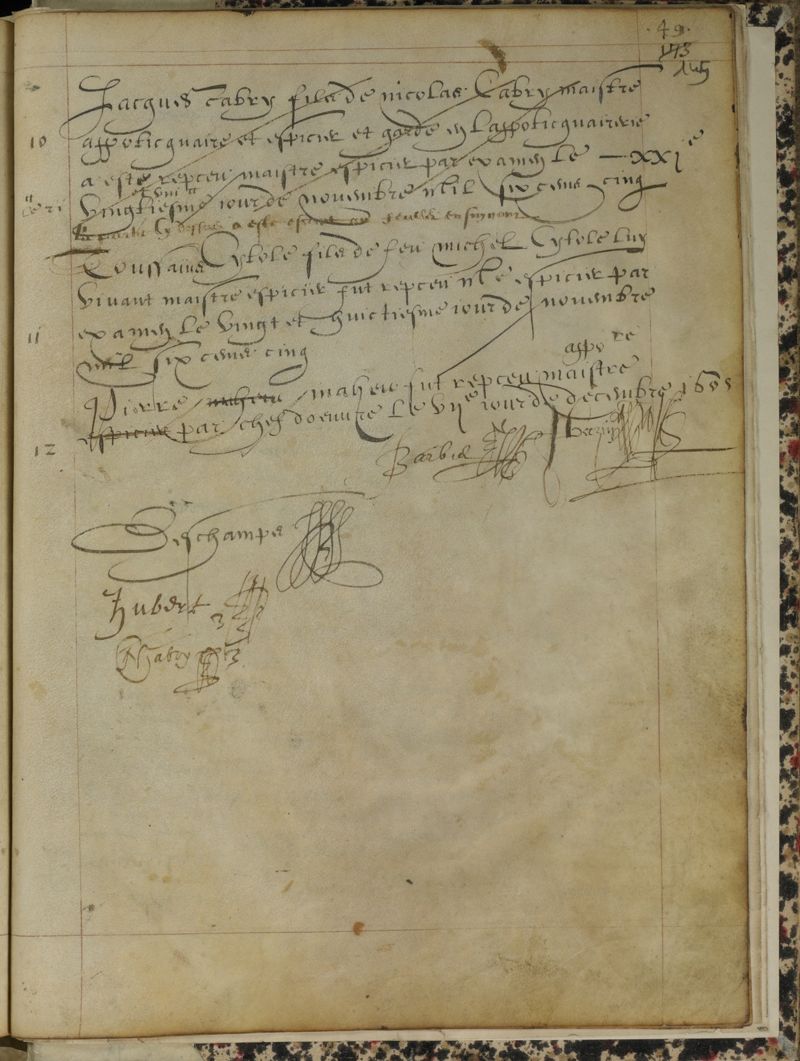 49
173
145
10
Jacques Cabry filz de nicolas Cabry maistre
appoticquaire et espicier et garde en lappoticquairerie
a esté repceu maistre espicier par examen le XXIe
vingtiesme jour de novembre mil six cens cinq
cy dessus a esté
11
Toussainz filz de feu michel luy
vivant maistre espicier fut repceu Me espicier par
examen le vingt et huictiesme jour de novembre
mil six cens cinq
appore
12
Pierre maheu maheu fut repceu maistre
espicier par chef doeuvre le vije jour de decembre 1605
Barbié
Deschamps
Hubert
N Cabry